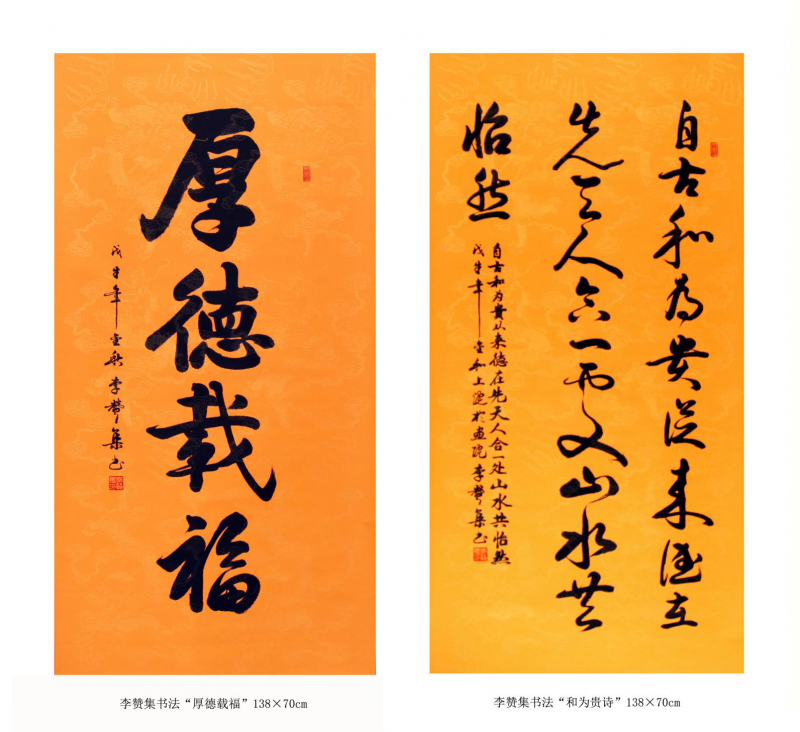 厚德載福
年金秋李贊集书
李赞集书法“厚德载福”138×70cm
自古和为贵从来德在
先天人合一处山水共
怡然
自古和为贵从来德在先天人合一处山水共怡然
年金秋上浣於画院李贊集书
李赞集书法“和为贵诗”138×70cm